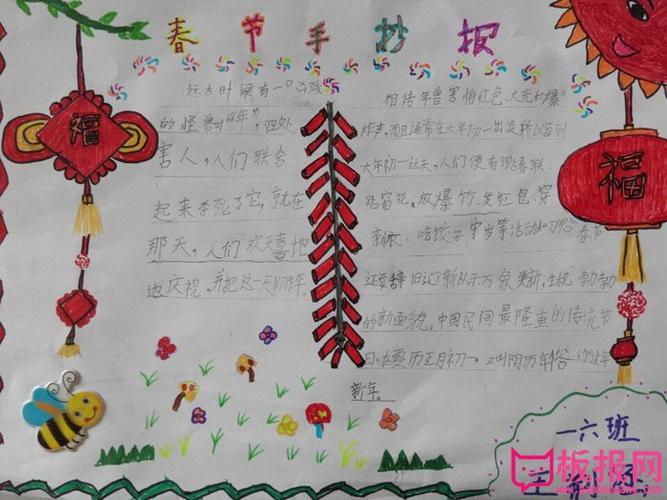 春节手抄报
福
远古时候有一只凶残
的怪兽叫"年",四处
害人,人们联合
起来杀死了它,就在
那天,人们欢天喜地
地庆祝,并把这一天
相传年兽害怕红色、火光和爆
炸声,而且通常在大年初一出没,所以每到
大年初一这天,人们便有了贴春联、
贴窗花、放爆竹、发红包、穿
新衣、吃饺子、守岁等活动
春节
还要辞旧迎新以示万象更新,生机勃勃
的新面貌。中国民间最隆重的传统节
日在夏历正月初一,又叫阴历年,俗
新年。
福
一六班
板报网